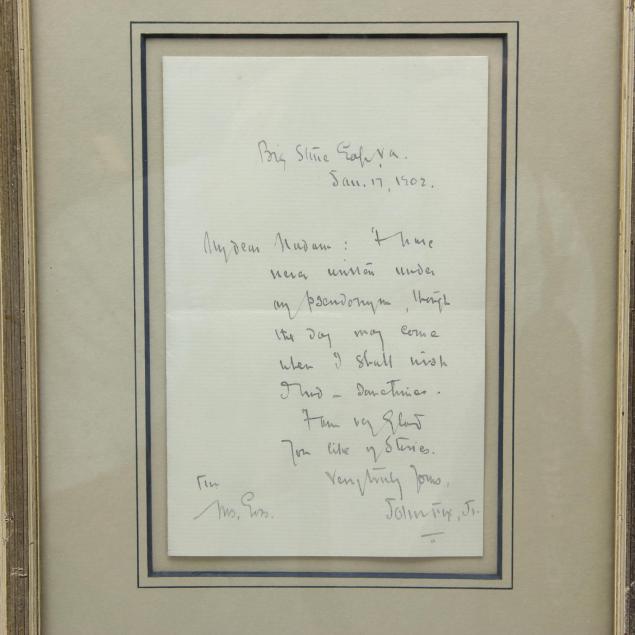 Big Stone Gap, Va.
Jan. 17, 1902.
My dear Madam: I have
never written under
any pseudonym, though
the day may come
when I shall wish
I had – sometimes.
I am very glad
you like my stories.
Very truly yours,
John Fox, Jr.
To
Mrs.